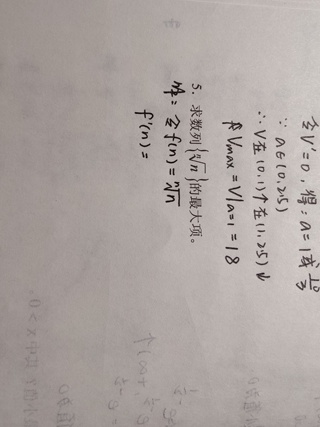 令V'=0,得:a=1或10/3
∵a∈(0,2.5)
∴V在(0,1)↑在(1,2.5)↓
由Vmax=V|a=1=18
5. 求数列{ⁿ√n}的最大项。
解:令f(n)=ⁿ√n
f'(n)=